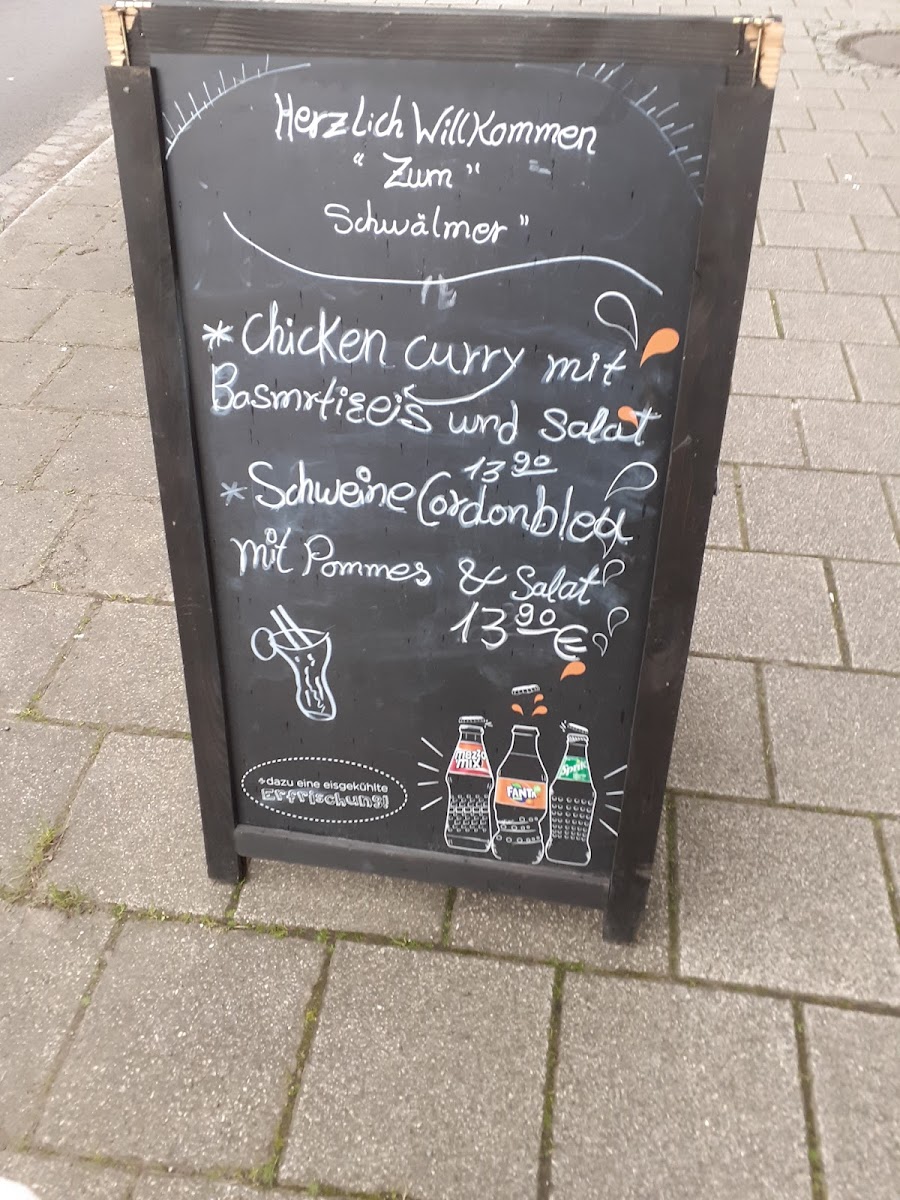 Herzlich Willkommen
"Zum"
Schwälmer"
* Chicken curry mit
Basmrtireis und Salat
13 90
* Schweine Cordonbleu
mit Pommes & Salat
13 90 €
dazu eine eisgekühlte
Erfrischung!
mezzo mix
FANTA
Sprite